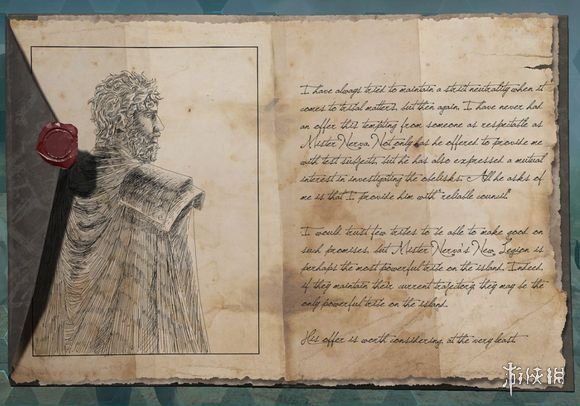 I have always tried to maintain a strict neutrality when it
comes to tribal matters, but then again, I have never had
an offer this tempting from someone as respectable as
Mister Nerva. Not only has he offered to provide me
with test subjects, but he has also expressed a mutual
interest in investigating the obelisks. All he asks of
me is that I provide him with "reliable council".
I would trust few tribes to be able to make good on
such promises, but Mister Nerva's New Legion is
perhaps the most powerful tribe on the island. Indeed,
if they maintain their current trajectory, they may be the
only powerful tribe on the island.
His offer is worth considering, at the very least.
游侠网